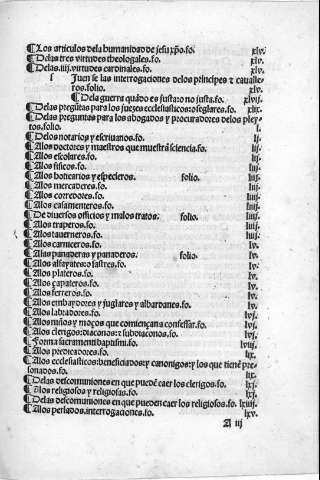 ¶ Los articulos dela humanidad de jesu xp̄o.fo. xlv.
¶ Delas tres virtudes theologales.fo. xlv.
¶ Delas.iiij.virtudes cardinales.fo. xlv.
ſ Juen se las interrogaciones delos principes τ cavalle-
ros.folio. xlv.
¶ Dela guerra quãdo es justa:o no justa.fo. xlvij.
¶ Delas preguntas para los juezes ecclesiasticos:o seglares.fo. xlix.
¶ Delas preguntas para los abogados y procuradores delos pley-
tos.folio. l.
¶ Delos notarios y escrivanos.fo. li.
¶ Alos doctores y maestros que muestrã sciencia.fo. lij.
¶ Alos escolares.fo. lij.
¶ Alos fisicos.fo. lij.
¶ Alos boticarios y especieros. folio. liij.
¶ Alos mercaderes.fo. liij.
¶ Alos corredores.fo. liij.
¶ Alos casamenteros.fo. liiij.
¶ De diversos officios y malos tratos. folio. liiij.
¶ Alos traperos.fo. liiij.
¶ Alos taverneros.fo. liiij.
¶ Alos carniceros.fo. lv.
¶ Alas panaderas y panaderos. folio. lv.
¶ Alos alfayates:o sastres.fo. lv.
¶ Alos plateros.fo. lv.
¶ Alos çapateros.fo. lv.
¶ Alos ferreros.fo. lv.
¶ Alos embaydores y juglares y albardanes.fo. lv.
¶ Alos labradores.fo. lvj.
¶ Alos niños y moços que comiençan a confessar.fo. lvj.
¶ Alos clerigos:diaconos:τ subdiaconos.fo. lvj.
¶ Forma sacramenti baptismi.fo. lviij.
¶ Alos predicadores.fo. lix.
¶ Alos ecclesiasticos:beneficiados:y canonigos:y los que tienē pre-
sonados.fo. lix.
¶ Delas descomuniones en que puedē caer los clerigos.fo. lxj.
¶ Alos religiosos y religiosas.fo. lxj.
¶ Delas descomuniones en que pueden caer los religiosos.fo. lxiij.
¶ Alos perlados.interrogaciones.fo. lxv.
A iij